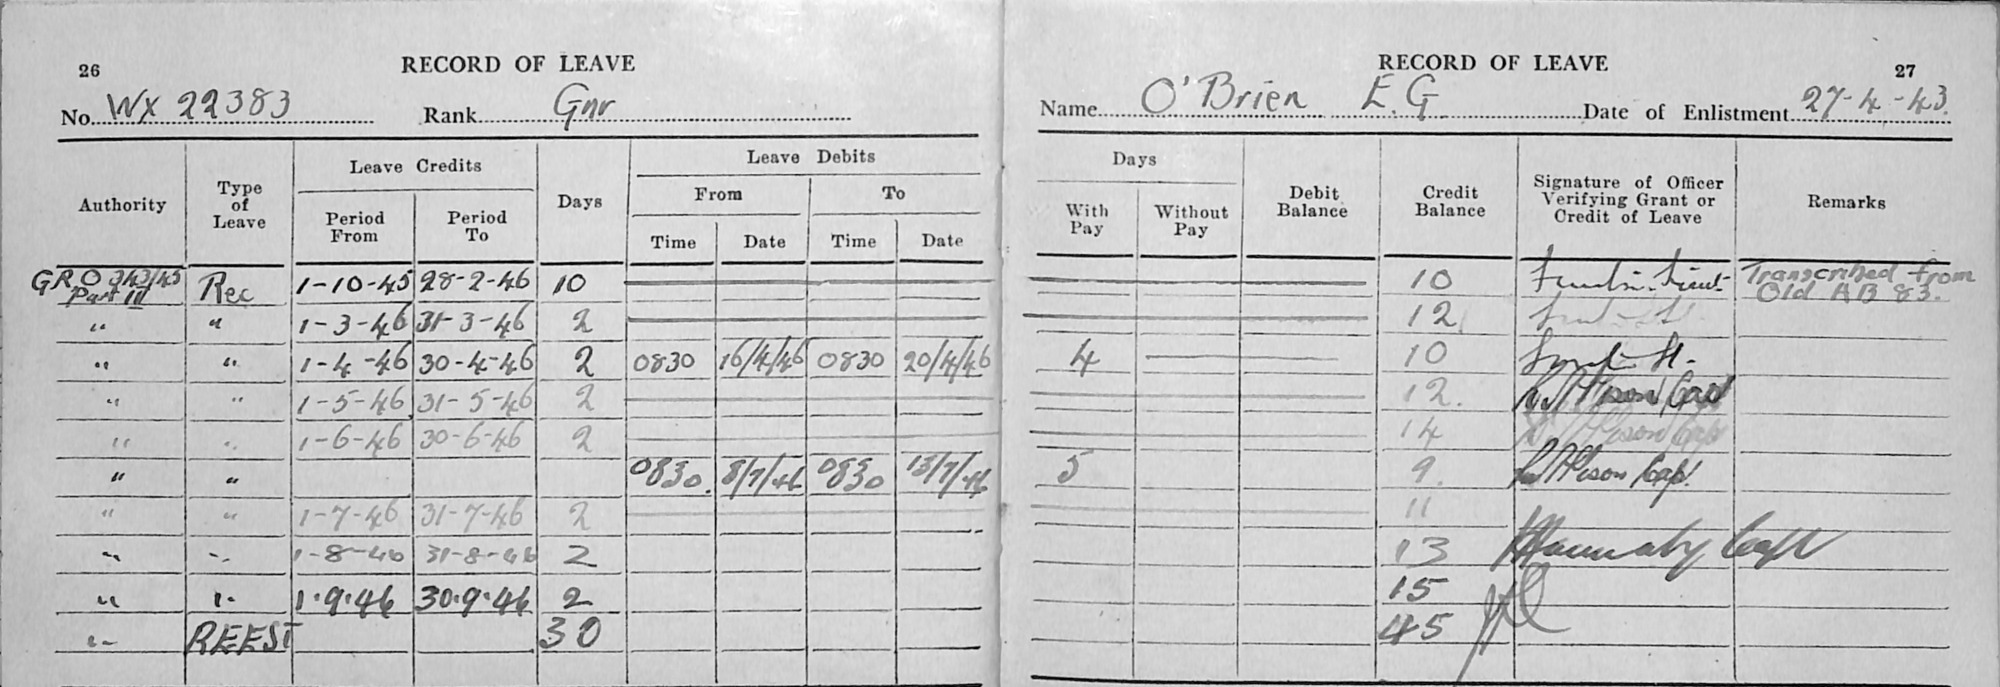 26
RECORD OF LEAVE
No. WX 22383 Rank Gnr
Authority Type of Leave Leave Credits Days Leave Debits
Period From Period To From To
Time Date Time Date
GRO 343/45 Part III Rec 1-10-45 28-2-46 10
" " 1-3-46 31-3-46 2
" " 1-4-46 30-4-46 2 0830 16/4/46 0830 20/4/46
" " 1-5-46 31-5-46 2
" " 1-6-46 30-6-46 2
" " 0830 8/7/46 0830 13/7/46
" " 1-7-46 31-7-46 2
" " 1-8-46 31-8-46 2
" " 1.9.46 30.9.46 2
" REEST 30
RECORD OF LEAVE
27
Name O'Brien E.G Date of Enlistment 27-4-43
Days Debit Balance Credit Balance Signature of Officer Verifying Grant or Credit of Leave Remarks
With Pay Without Pay
10 Transcribed from Old AB 83.
12
4 10
12. Capt
14 Capt
5 9. Capt.
11
13 Capt
15
45